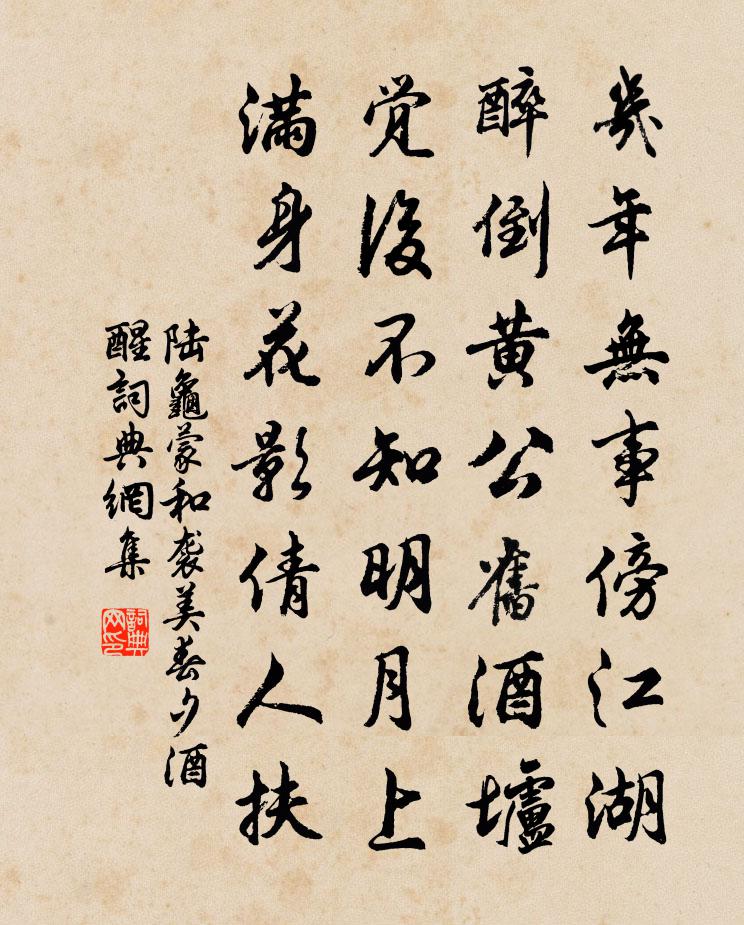 幾年無事傍江湖
醉倒黄公舊酒壚
覺後不知明月上
滿身花影倩人扶
陸龜蒙和袭美春夕酒
醒詞典網集
詞典
网印